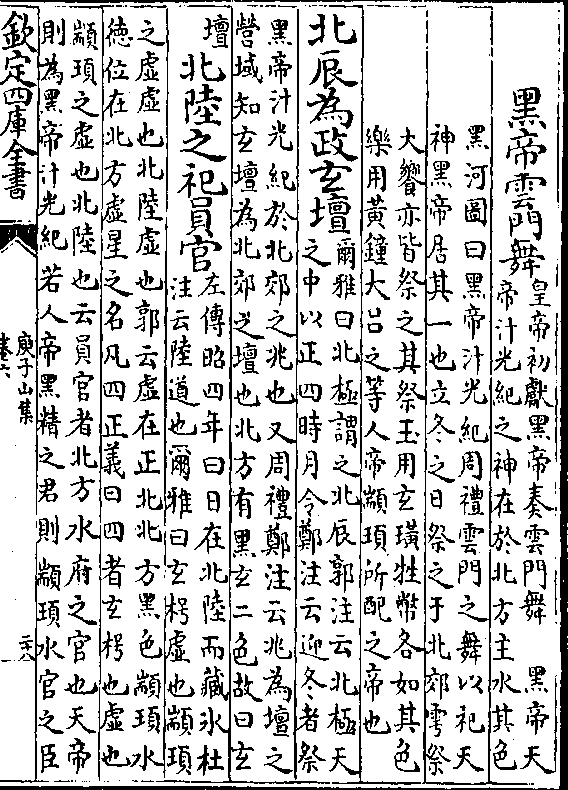 黑帝雲門舞皇帝初獻黑帝奏雲門舞　黑帝天
帝汁光紀之神在於北方主水其色
黑河圖曰黑帝汁光紀周禮雲門之舞以祀天
神黑帝居其一也立冬之日祭之于北郊雩祭
大饗亦皆祭之其祭玉用玄璜牲幣各如其色
樂用黃鐘大吕之等人帝顓頊所配之帝也
北辰為政玄壇爾雅曰北極謂之北辰郭注云北極天
之中以正四時月令鄭注云迎冬者祭
黑帝汁光紀於北郊之兆也又周禮鄭注云兆為壇之
營域知玄壇為北郊之壇也北方有黑玄二色故曰玄
壇
北陸之祀員官左傳昭四年曰日在北陸而藏氷杜
注云陸道也爾雅曰玄枵虛也顓頊
之虛虛也北陸虛也郭云虛在正北北方黑色顓頊水
徳位在北方虛星之名凡四正義曰四者玄枵也虛也
顓頊之虛也北陸也云員官者北方水府之官也天帝
則為黑帝汁光紀若人帝黑精之君則顓頊水官之臣
欽定四庫全書
庾子山集
卷六
二十八